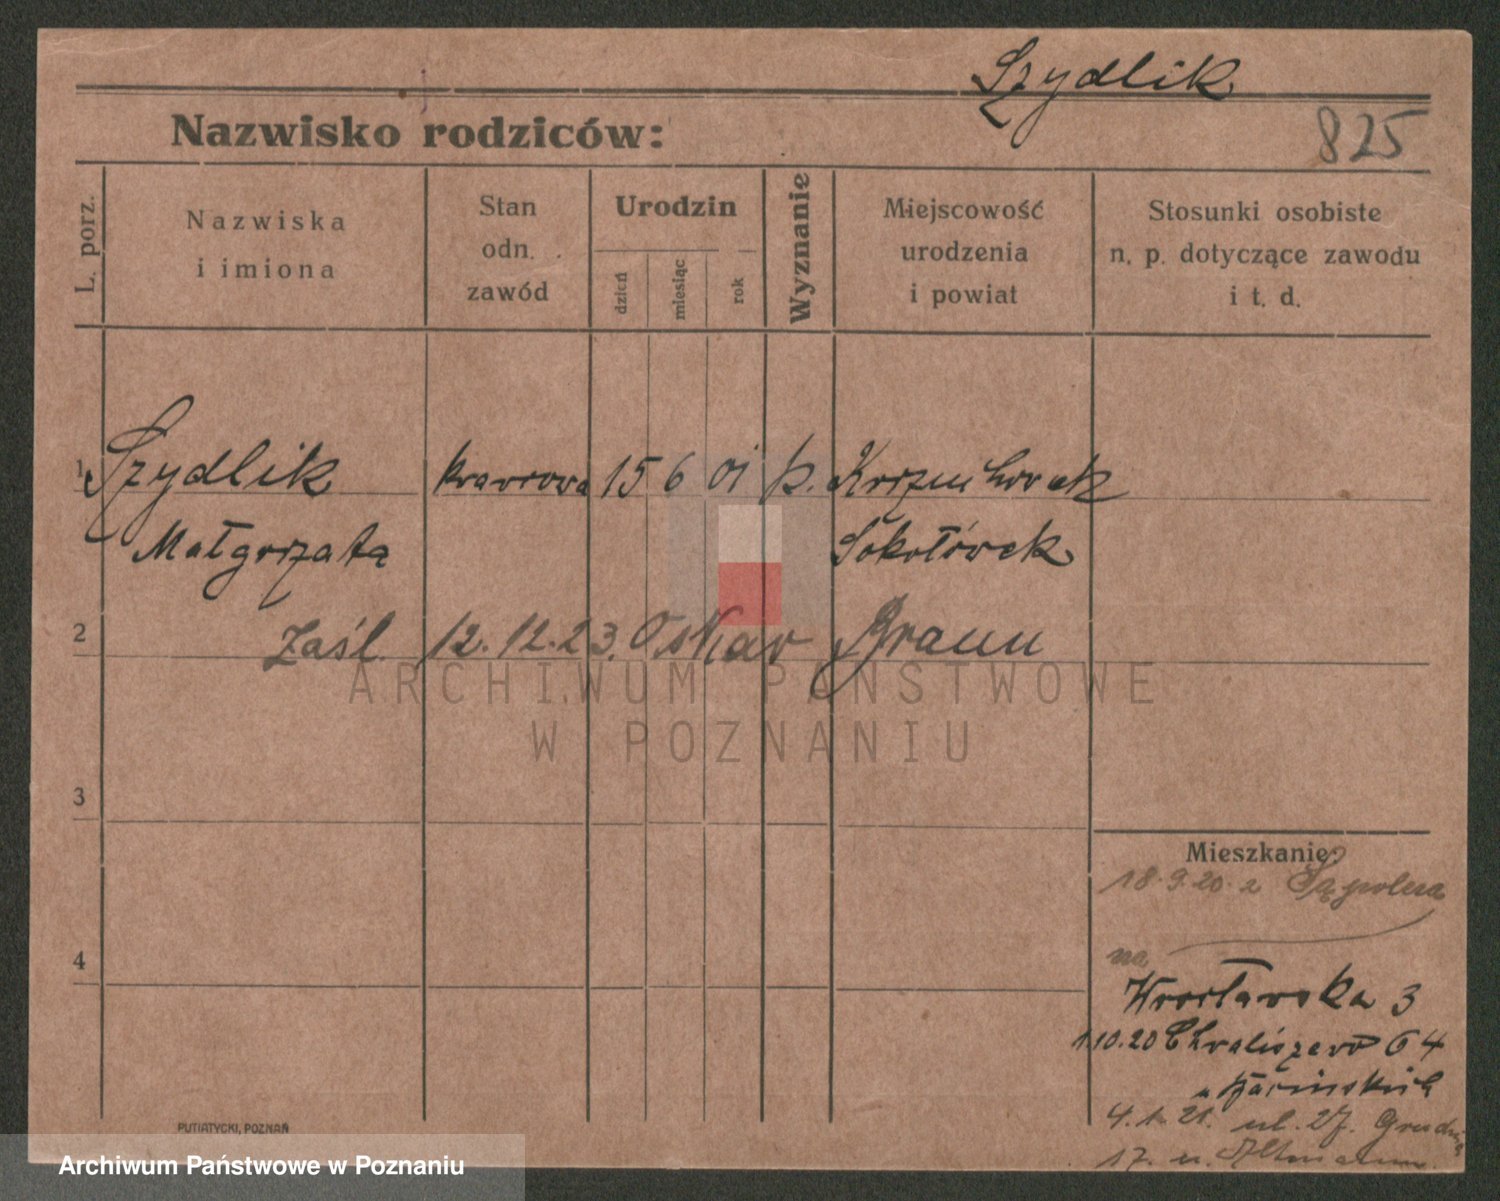 Szydlik
Nazwisko rodziców:
825
L. porz.
Nazwiska
i imiona
Stan
odn.
zawód
Urodzin
dzień
miesiąc
rok
Wyznanie
Miejscowość
urodzenia
i powiat
Stosunki osobiste
n. p. dotyczące zawodu
i t. d.
1 Szydlik krawcowa 15 6 01
Małgorzata Sokołówek
2 Zaśl. 12.12.23. Oskar Braun
ARCHIWUM PAŃSTWOWE
W POZNANIU
3
Mieszkanie:
18.9.20. z Sąpolna
4
na
Wrocławska 3
1.10.20 Chwaliszewo 64
4.1.21. ul. 27. Grudnia
17. u. Altmann.
PUTIATYCKI, POZNAŃ
Archiwum Państwowe w Poznaniu